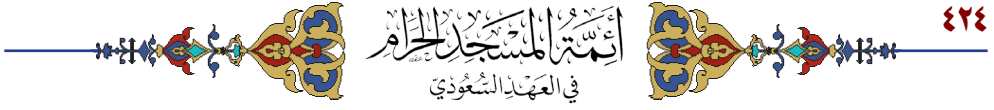 ٤٢٤
أَئِمَّةُ المَسْجِدِ الحَرَامِ
في العَهْدِ السُّعُودِيّ